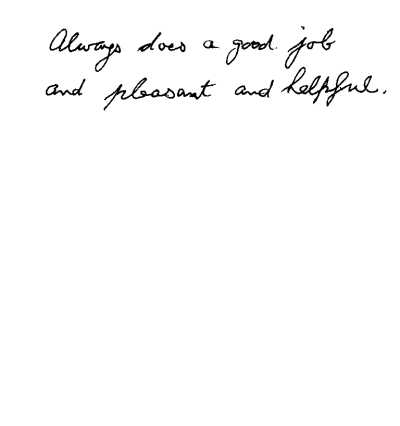 Always does a good job
and pleasant and helpful.